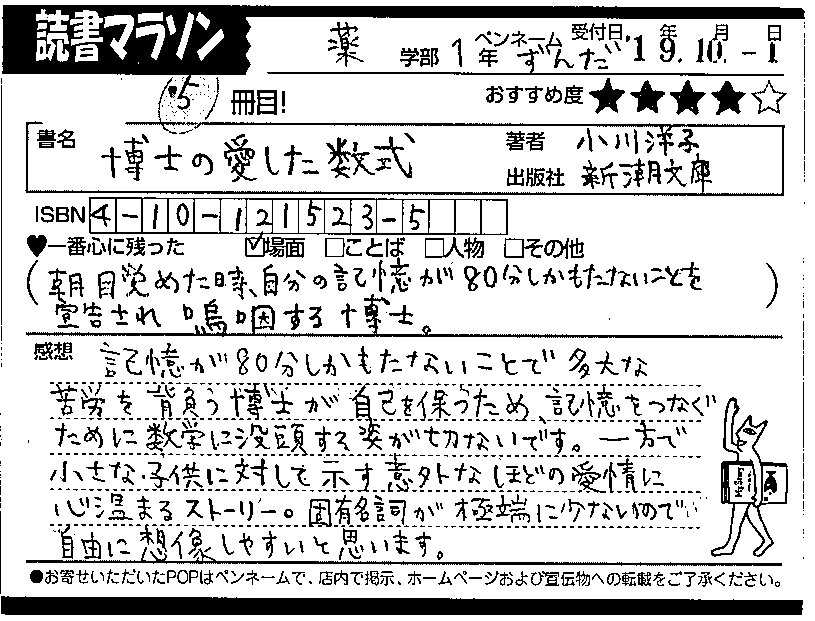 読書マラソン
薬 学部 1年 ペンネーム ずんだ 受付日 '19年10月-1日
5 冊目!
おすすめ度 ★★★★☆
書名 博士の愛した数式
著者 小川洋子
出版社 新潮文庫
ISBN 4-10-121523-5
♥一番心に残った ☑場面 □ことば □人物 □その他
(朝目覚めた時、自分の記憶が80分しかもたないことを
宣告され 嗚咽する博士。)
感想 記憶が80分しかもたないことで多大な
苦労を背負う博士が自己を保うため、記憶をつなぐ
ために数学に没頭する姿が切ないです。一方で
小さな子供に対して示す意外なほどの愛情に
心温まるストーリー。固有名詞が極端に少ないので
自由に想像しやすいと思います。
●お寄せいただいたPOPはペンネームで、店内で掲示、ホームページおよび宣伝物への転載をご了承ください。